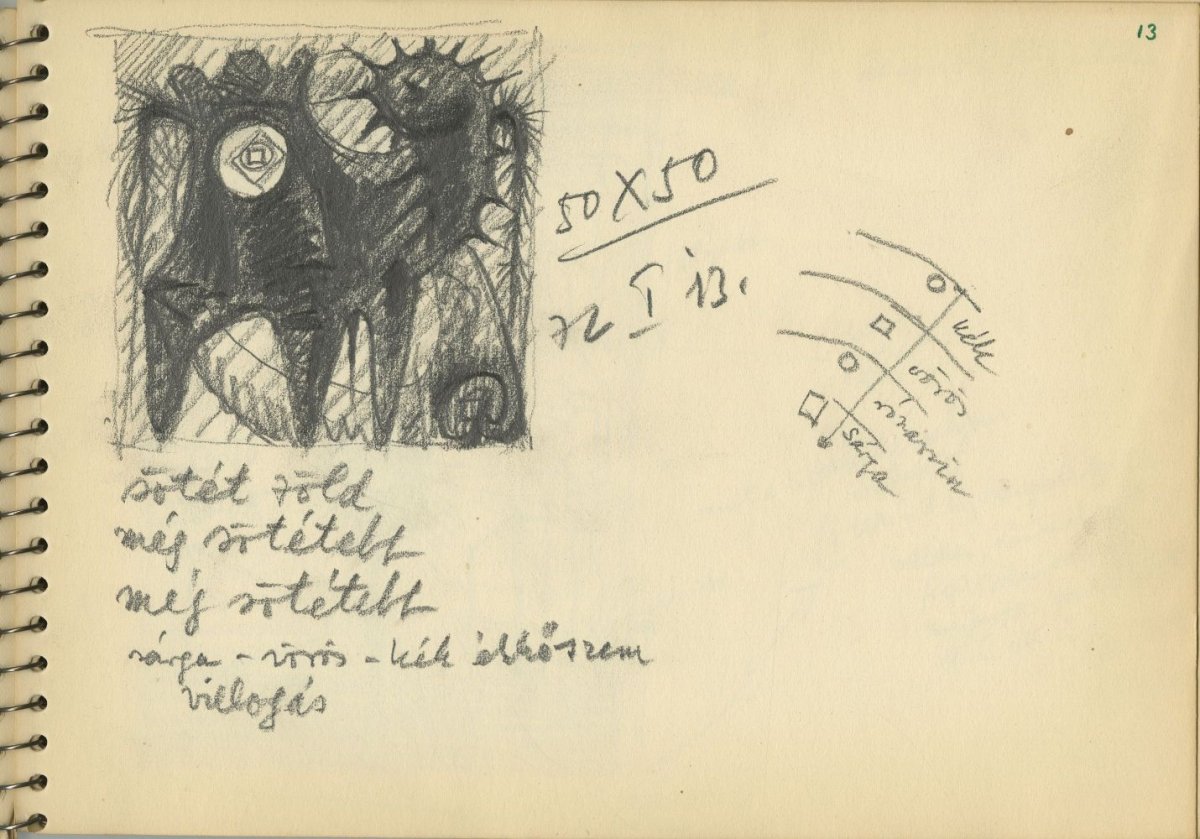 13
50X50
72 I 13.
kék
vörös
narancs
sárga
sötét zöld
még sötétebb
még sötétebb
sárga - vörös - kék ékkőszem
villogás